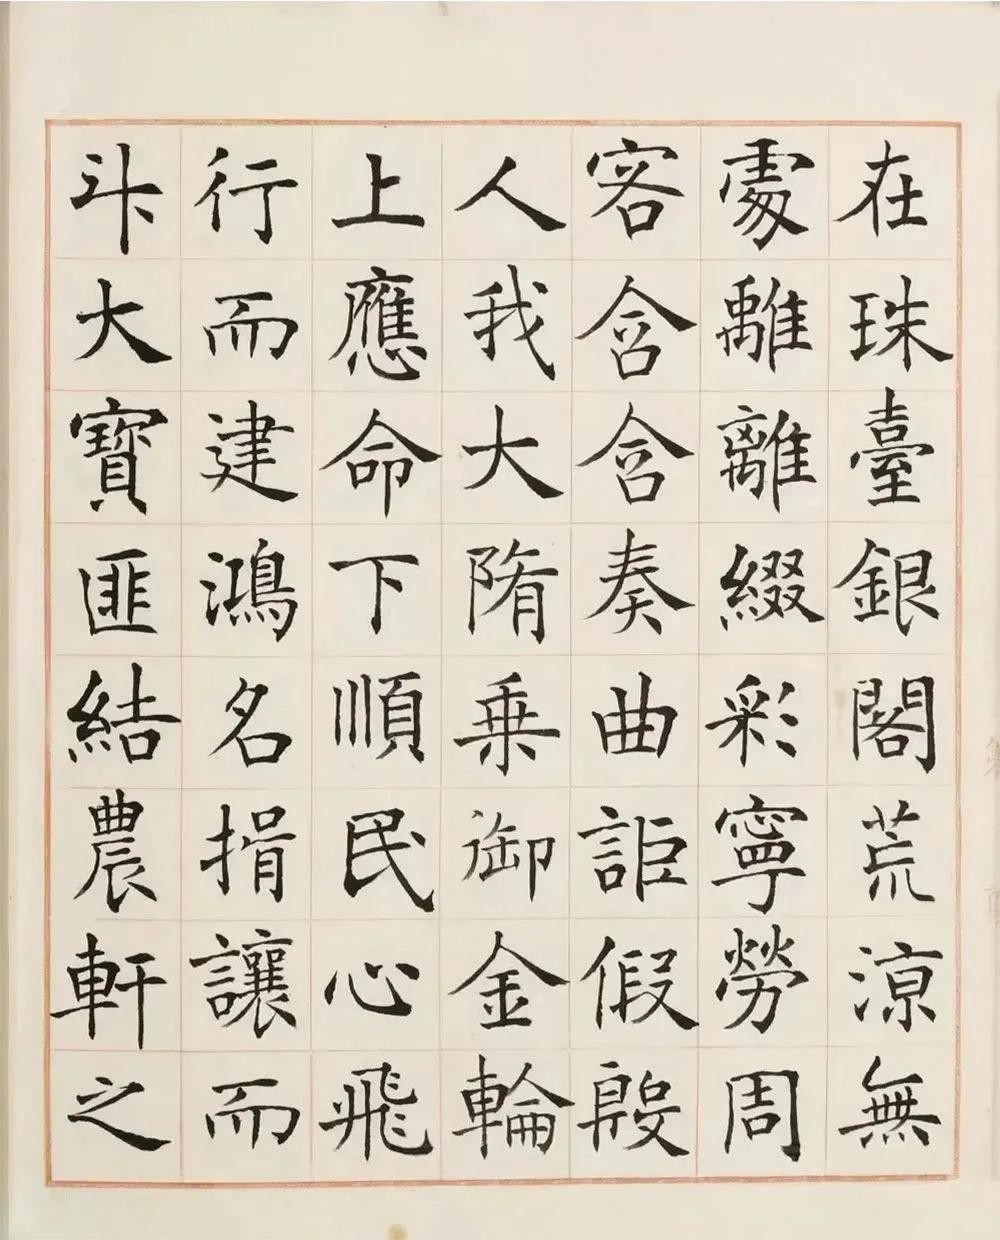 在珠臺銀閣荒涼無
處離離綴彩寧勞周
客含含奏曲詎假殷
人我大隋乗御金輪
上應命下順民心飛
行而建鴻名揖讓而
升大寶匪結農軒之